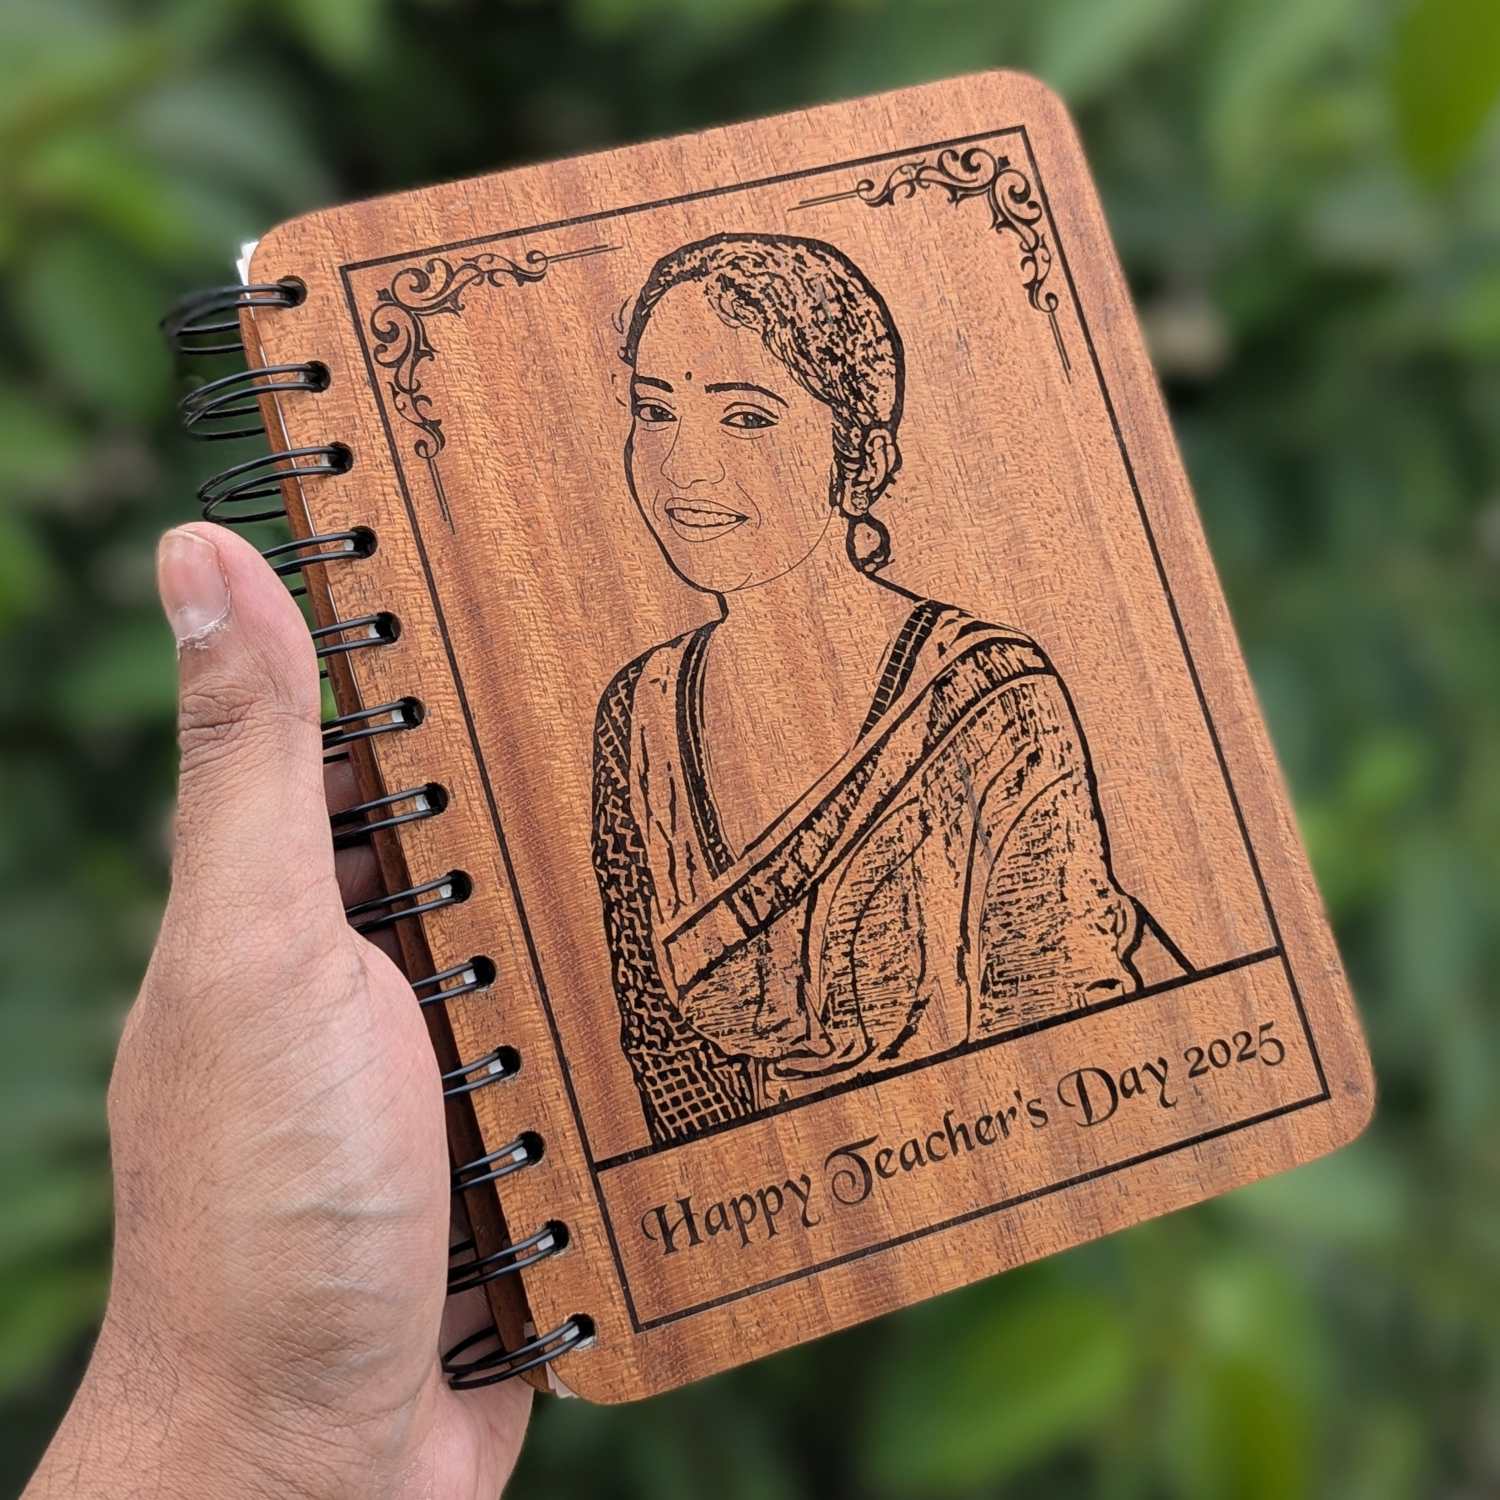 Happy Teacher's Day 2025